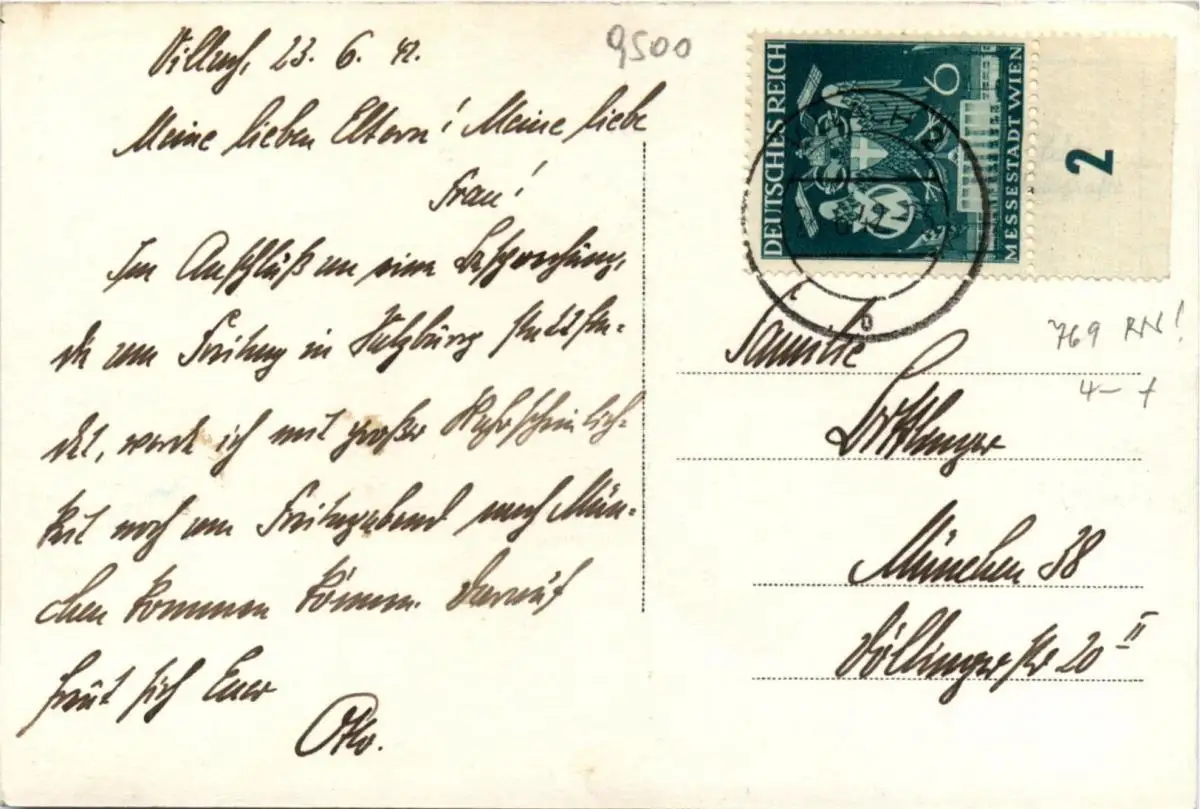 Villach, 23. 6. 42.
9500
Meine lieben Eltern! Meine liebe
Frau!
Im Anschluß an eine Besprechung,
die am Freitag in Salzburg stattfin-
det, werde ich mit großer Wahrscheinlich-
keit noch am Freitagabend nach Mün-
chen kommen können. Darauf
freut sich Euer
Otto.
DEUTSCHES REICH
6
MESSESTADT WIEN
2
2
b
769 RN!
4 -
Familie
München 38
Döllingerstr 20 II